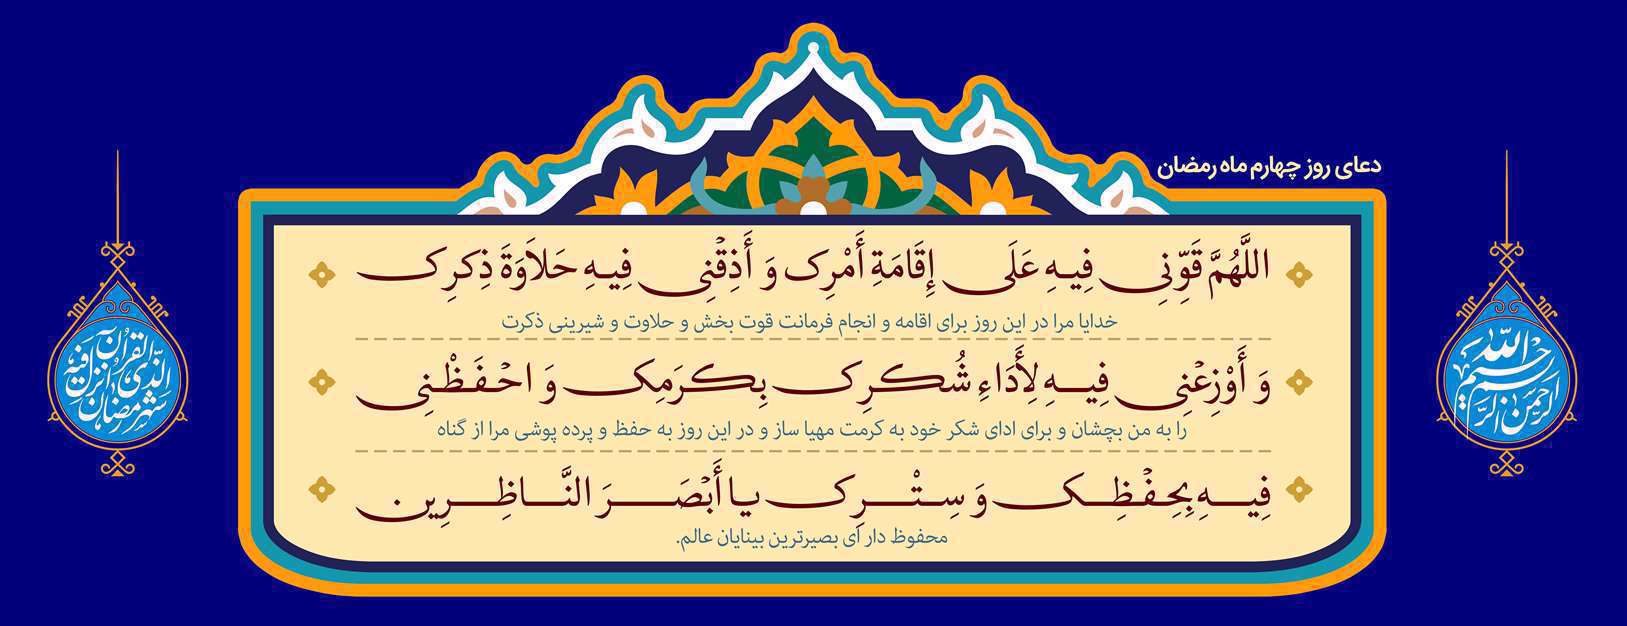 دعای روز چهارم ماه رمضان
اللَّهُمَّ قَوِّنِي فِيهِ عَلَى إِقَامَةِ أَمْرِكَ وَ أَذِقْنِي فِيهِ حَلاَوَةَ ذِكْرِكَ
خدایا مرا در این روز برای اقامه و انجام فرمانت قوت بخش و حلاوت و شیرینی ذکرت
وَ أَوْزِعْنِي فِيهِ لِأَدَاءِ شُكْرِكَ بِكَرَمِكَ وَ احْفَظْنِي
را به من بچشان و برای ادای شکر خود به کرمت مهیا ساز و در این روز به حفظ و پرده پوشی مرا از گناه
فِيهِ بِحِفْظِكَ وَ سِتْرِكَ يَا أَبْصَرَ النَّاظِرِينَ.
محفوظ دار ای بصیرترین بینایان عالم.
بسم الله الرحمن الرحیم
شهر رمضان الذی انزل فیه القرآن